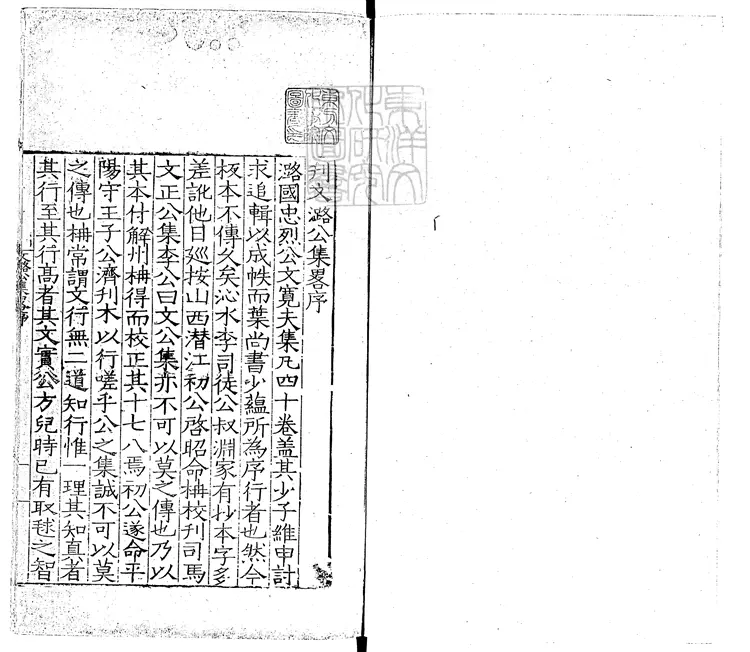 刋文潞公集畧序
潞國忠烈公文寛夫集凡四十卷盖其少子維申討
求追輯以成帙而葉尚書少蘊所為序行者也然今
板本不傳久矣沁水李司徒公叔淵家有抄本字多
差訛他日廵按山西潜江初公啓昭命柟校刋司馬
文正公集李公曰文公集亦不可以莫之傳也乃以
其本付解州柟得而校正其十七八焉初公遂命平
陽守王子公濟刋木以行嗟乎公之集誠不可以莫
之傳也柟常謂文行無二道知行惟一理其知真者
其行至其行髙者其文實公方兒時已有取毬之智
文潞公集畧序